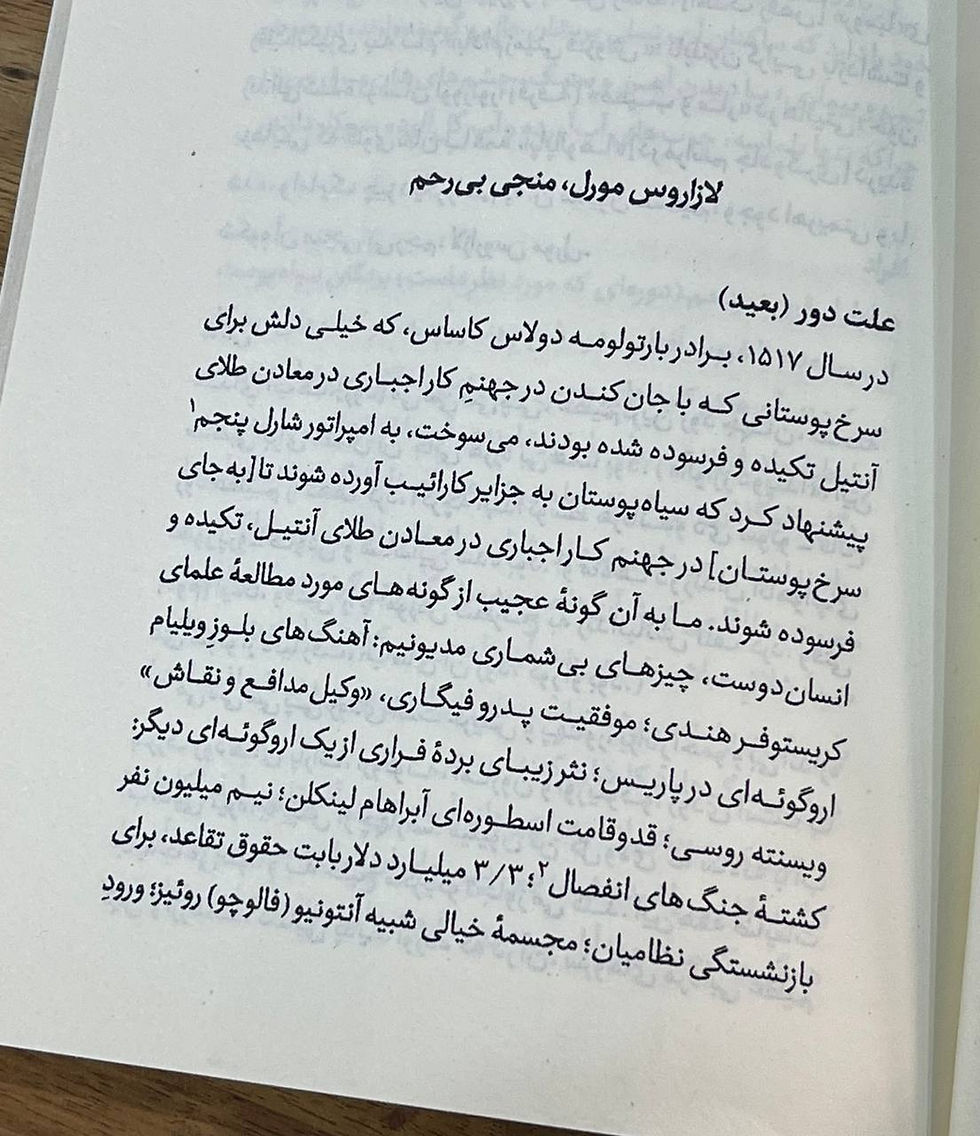 لازاروس مورل، منجی بی‌رحم
علت دور (بعید)
در سال ۱۵۱۷، برادر بارتولومه دولاس کاساس، که خیلی دلش برای
سرخ‌پوستانی که با جان کندن در جهنمِ کار اجباری در معادن طلای
آنتیل تکیده و فرسوده شده بودند، می‌سوخت، به امپراتور شارل پنجم۱
پیشنهاد کرد که سیاه‌پوستان به جزایر کارائیب آورده شوند تا [به‌جای
سرخ‌پوستان] در جهنم کار اجباری در معادن طلای آنتیل، تکیده و
فرسوده شوند. ما به آن گونهٔ عجیب از گونه‌های مورد مطالعهٔ علمای
انسان‌دوست، چیزهای بی‌شماری مدیونیم: آهنگ‌های بلوزِ ویلیام
کریستوفر هندی؛ موفقیت پدرو فیگاری، «وکیل مدافع و نقاش»
اروگوئه‌ای در پاریس؛ نثر زیبای بردهٔ فراری از یک اروگوئه‌ای دیگر:
ویسنته روسی؛ قدوقامت اسطوره‌ای آبراهام لینکلن؛ نیم میلیون نفر
کشتهٔ جنگ‌های انفصال۲؛ ۳/۳ میلیارد دلار بابت حقوق تقاعد، برای
بازنشستگی نظامیان؛ مجسمهٔ خیالی شبیه آنتونیو (فالوچو) روئیز؛ ورودِ